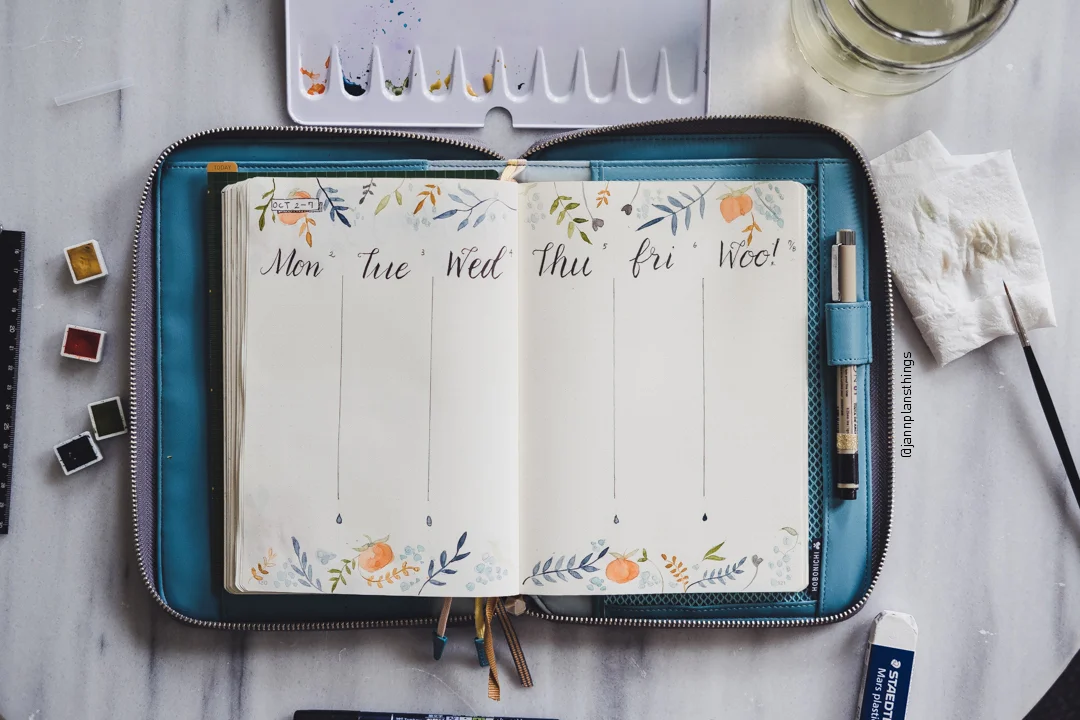 TODAY
OCT 2-7
Mon 2 Tue 3 Wed 4 Thu 5 fri 6 Woo! 7/8
@jannplansthings
HOBONICHI
STAEDT
Mars plasti